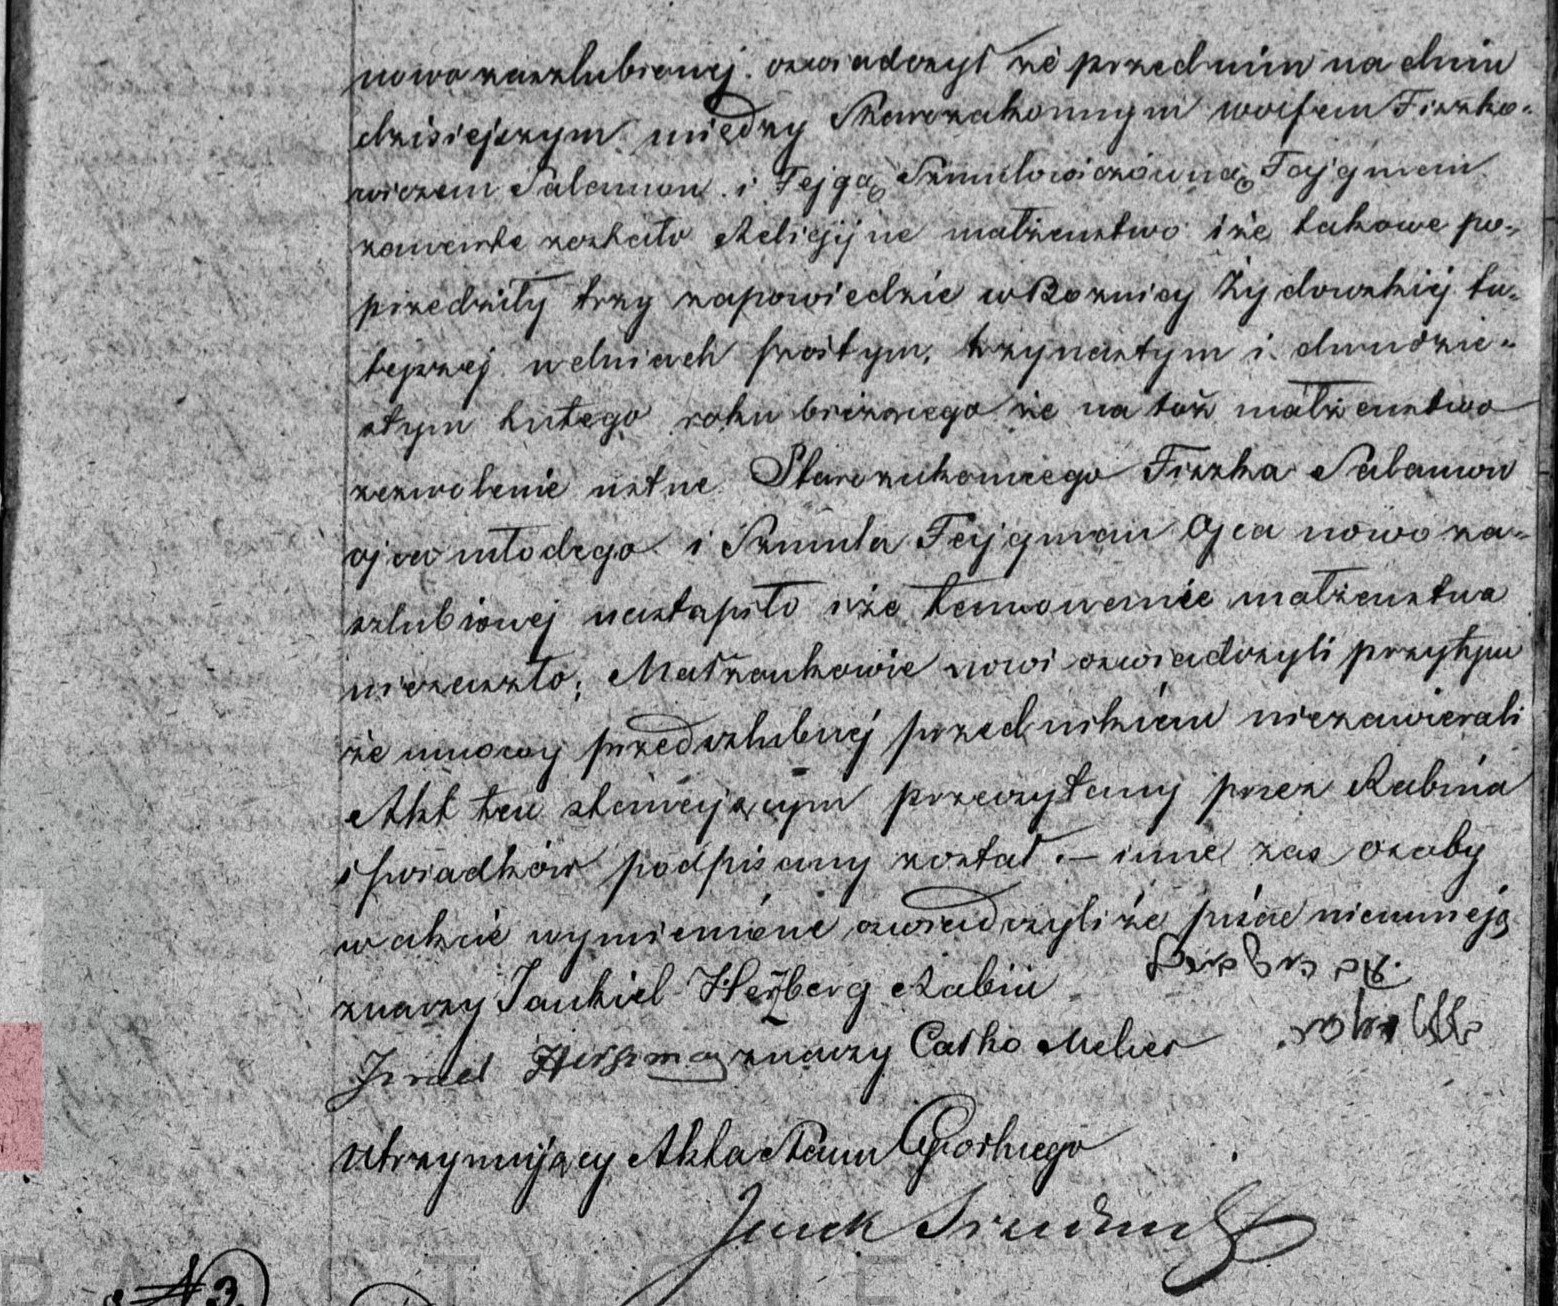 nowo zaszlubionej. oswiadczył że przed nim na dniu
dzisiejszym. między Starozakonnym Wolfem Fiszko-
wiczem Salamon i Fejgą Szmulowiczówną Fejgman
zawarte zostało Religijne małżenstwo i że takowe po-
przedziły trzy zapowiedzie w Boznicy Żydowskiej tu-
tejszej w dniach szostym, trzynastym i dwudzie-
stym Lutego roku bieżącego że na toż małżenstwo
zezwolenie ustne Starozakonnego Fiszka Salamon
ojca młodego i Szmula Fejgman Ojca nowo za-
szlubionej nastąpiło i że tamowanie małżenstwa
niezaszło; Małżonkowie nowi oswiadczyli przytym
że umowy przedszlubnej przed nikiem niezawierali
Akt ten stawającym przeczytany przez Rabina
i swiadków podpisany został. – inne zas osoby
w akcie wymienione oswiadczyli że pisac nieumieją
znaczy Jankiel Herzberg Rabin
Izrael znaczy Calko Meher
Utrzymujący Akta Stanu Cywilnego
Jacek
№ 3.